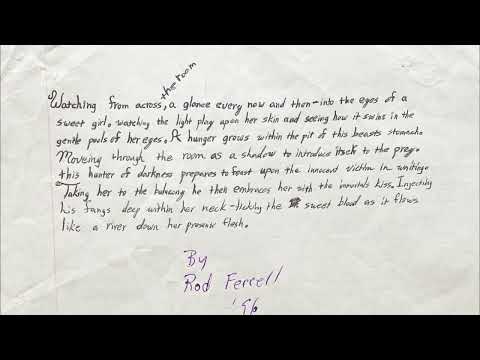 the room
Watching from across, a glance every now and then - into the eyes of a
sweet girl. watching the light play upon her skin and seeing how it swins in the
gentle pools of her eyes. A hunger grows within the pit of this beasts stomach.
Moveing through the room as a shadow to introduce itself to the prey.
this hunter of darkness prepares to feast upon the innocent victim in waiting.
Taking her to the he then embraces her with the kiss. Injecting
his fangs deep within her neck - licking the sweet blood as it flows
like a river down her flesh.
By
Rod Ferrell
'96